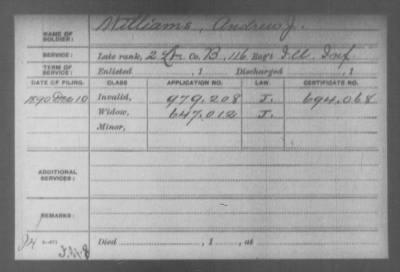 NAME OF SOLDIER: Williams, Andrew J.
SERVICE: Late rank, 2 Lt Co. B, 116 Reg't Ill. Inf.
TERM OF SERVICE: Enlisted , 1 Discharged , 1
DATE OF FILING. CLASS APPLICATION NO. LAW. CERTIFICATE NO.
1890 Dec 10 Invalid, 979.208 J. 694.068
Widow, 647.012 J.
Minor,
ADDITIONAL SERVICES:
REMARKS:
Died , 1 , at